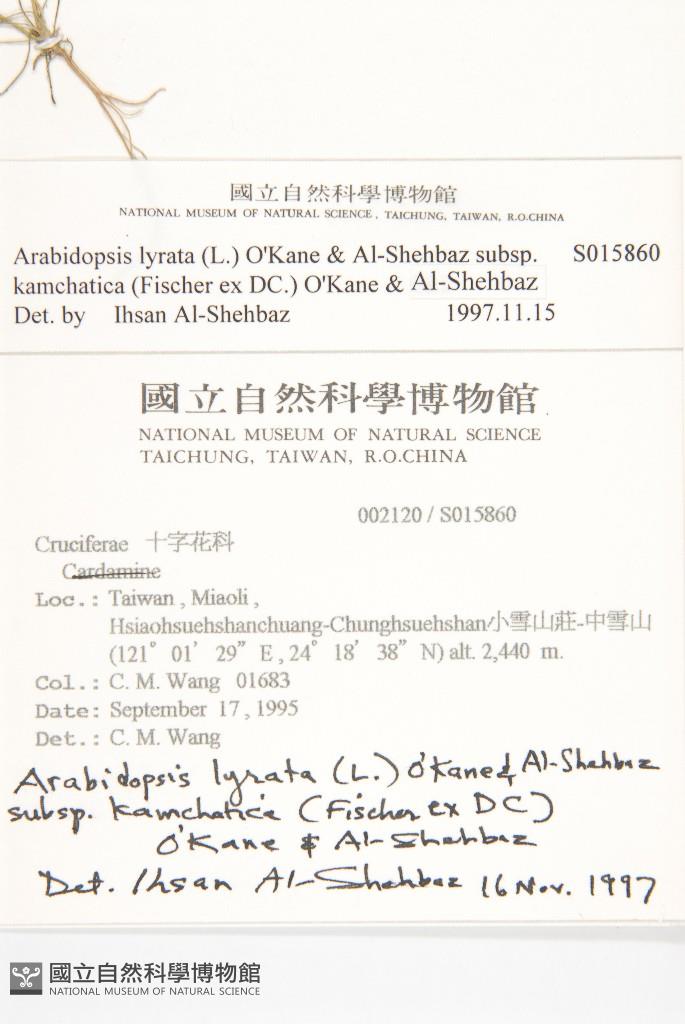 國立自然科學博物館
NATIONAL MUSEUM OF NATURAL SCIENCE, TAICHUNG, TAIWAN, R.O.CHINA
Arabidopsis lyrata (L.) O'Kane & Al-Shehbaz subsp. S015860
kamchatica (Fischer ex DC.) O'Kane & Al-Shehbaz
Det. by Ihsan Al-Shehbaz 1997.11.15
國立自然科學博物館
NATIONAL MUSEUM OF NATURAL SCIENCE
TAICHUNG, TAIWAN, R.O.CHINA
002120 / S015860
Cruciferae 十字花科
Cardamine
Loc.: Taiwan , Miaoli ,
Hsiaohsuehshanchuang-Chunghsuehshan小雪山莊-中雪山
(121° 01′ 29″ E , 24° 18′ 38″ N) alt. 2,440 m.
Col.: C. M. Wang 01683
Date: September 17 , 1995
Det.: C. M. Wang
Arabidopsis lyrata (L.) O'Kane & Al-Shehbaz
subsp. kamchatica (Fischer ex DC)
O'Kane & Al-Shehbaz
Det. Ihsan Al-Shehbaz 16 Nov. 1997
國立自然科學博物館
NATIONAL MUSEUM OF NATURAL SCIENCE